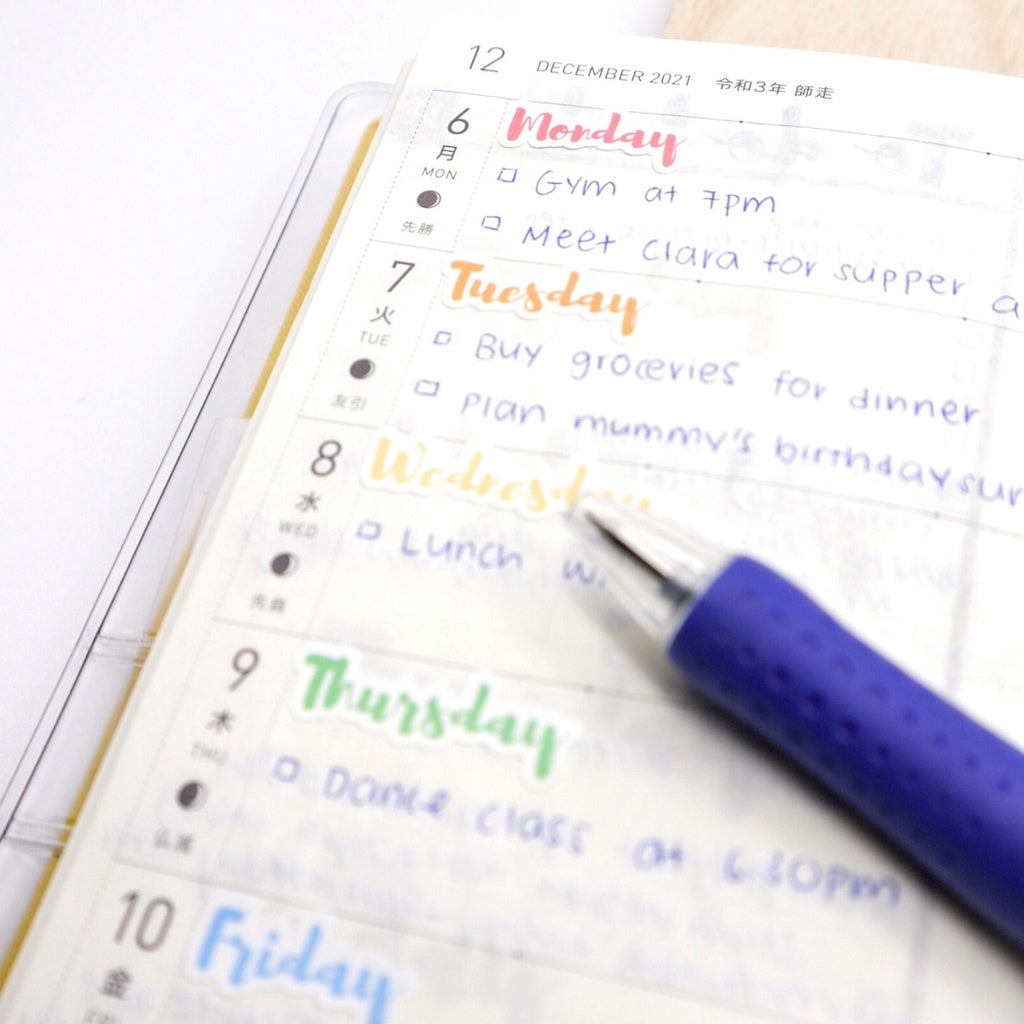 12 DECEMBER 2021 令和3年 師走
6 Monday
月
MON
先勝
Gym at 7pm
Meet Clara for supper a
7 Tuesday
火
TUE
友引
Buy groceries for dinner
Plan mummy's birthday sur
8 Wednesday
水
WED
先負
Lunch wi
9 Thursday
木
THU
仏滅
Dance class at 6.30pm
10 Friday
金